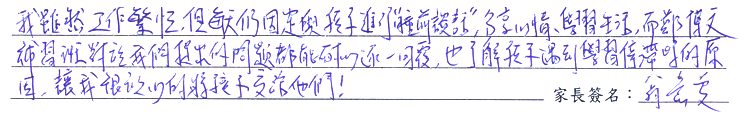 我雖然工作繁忙,但每天仍固定與孩子進行"睡前談話",分享心情、學習生活,而鄭偉文
補習班對於我們提出的問題都能耐心逐一回覆,也了解孩子遇到學習停滯時的原
因,讓我很放心的將孩子交給他們!
家長簽名:翁